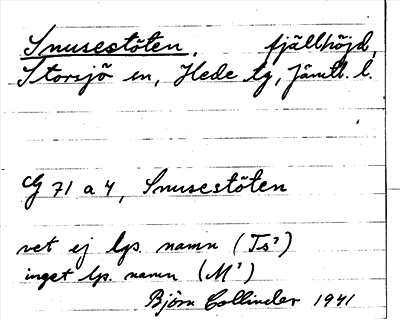 Snusestöten, fjällhöjd,
Storsjö sn, Hede tg, Jämtl. l.
G 71 a 4, Snusestöten
vet ej lps. namn (Ts¹)
inget lp. namn (M¹)
Björn Collinder 1941